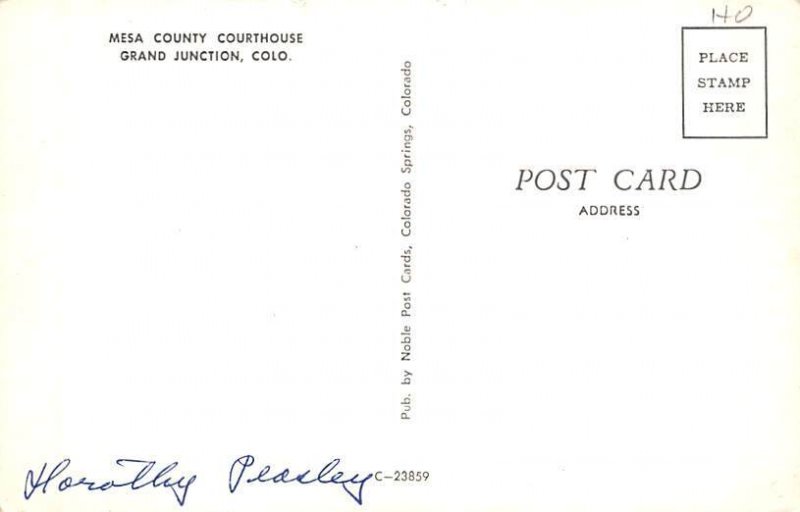 MESA COUNTY COURTHOUSE
GRAND JUNCTION, COLO.
Pub. by Noble Post Cards, Colorado Springs, Colorado
HO
PLACE
STAMP
HERE
POST CARD
ADDRESS
Dorothy Peasley
C-23859